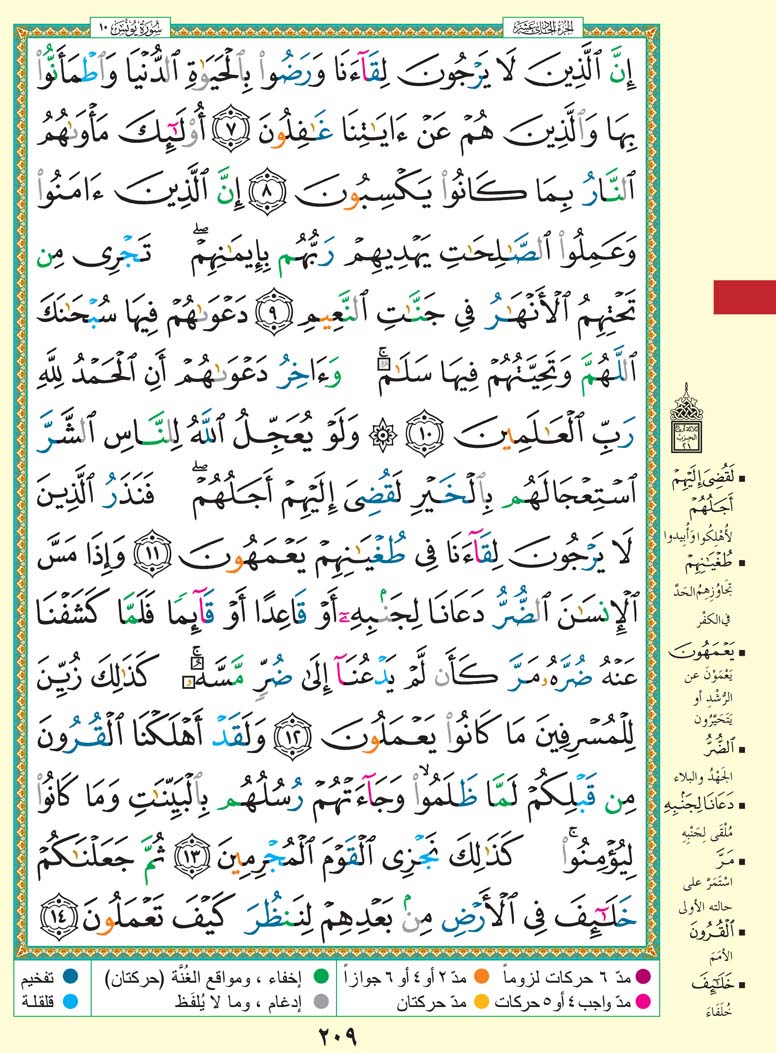 سُورَةُ يُونُسَ ١٠
الجزء الحادي عشر
إِنَّ الَّذِينَ لَا يَرْجُونَ لِقَآءَنَا وَرَضُوا بِالْحَيَوٰةِ الدُّنْيَا وَاطْمَأَنُّوا
بِهَا وَالَّذِينَ هُمْ عَنْ ءَايَٰتِنَا غَٰفِلُونَ ٧ أُولَٰٓئِكَ مَأْوَىٰهُمُ
النَّارُ بِمَا كَانُوا يَكْسِبُونَ ٨ إِنَّ الَّذِينَ ءَامَنُوا
وَعَمِلُوا الصَّٰلِحَٰتِ يَهْدِيهِمْ رَبُّهُم بِإِيمَٰنِهِمْ ۖ تَجْرِى مِن
تَحْتِهِمُ الْأَنْهَٰرُ فِي جَنَّٰتِ النَّعِيمِ ٩ دَعْوَىٰهُمْ فِيهَا سُبْحَٰنَكَ
اللَّهُمَّ وَتَحِيَّتُهُمْ فِيهَا سَلَٰمٌ ۚ وَءَاخِرُ دَعْوَىٰهُمْ أَنِ الْحَمْدُ لِلَّهِ
رَبِّ الْعَٰلَمِينَ ١٠ ۞ وَلَوْ يُعَجِّلُ اللَّهُ لِلنَّاسِ الشَّرَّ
اسْتِعْجَالَهُم بِالْخَيْرِ لَقُضِىَ إِلَيْهِمْ أَجَلُهُمْ ۖ فَنَذَرُ الَّذِينَ
لَا يَرْجُونَ لِقَآءَنَا فِى طُغْيَٰنِهِمْ يَعْمَهُونَ ١١ وَإِذَا مَسَّ
الْإِنسَٰنَ الضُّرُّ دَعَانَا لِجَنۢبِهِۦٓ أَوْ قَاعِدًا أَوْ قَآئِمًا فَلَمَّا كَشَفْنَا
عَنْهُ ضُرَّهُۥ مَرَّ كَأَن لَّمْ يَدْعُنَآ إِلَىٰ ضُرٍّ مَّسَّهُۥ ۚ كَذَٰلِكَ زُيِّنَ
لِلْمُسْرِفِينَ مَا كَانُوا يَعْمَلُونَ ١٢ وَلَقَدْ أَهْلَكْنَا الْقُرُونَ
مِن قَبْلِكُمْ لَمَّا ظَلَمُوا ۙ وَجَآءَتْهُمْ رُسُلُهُم بِالْبَيِّنَٰتِ وَمَا كَانُوا
لِيُؤْمِنُوا ۚ كَذَٰلِكَ نَجْزِى الْقَوْمَ الْمُجْرِمِينَ ١٣ ثُمَّ جَعَلْنَٰكُمْ
خَلَٰٓئِفَ فِي الْأَرْضِ مِنۢ بَعْدِهِمْ لِنَنظُرَ كَيْفَ تَعْمَلُونَ ١٤
ثلاثة أرباع
الحزب
٢١
لَقُضِىَ إِلَيْهِمْ
أَجَلُهُمْ
لأُهْلِكُوا وأُبِيدوا
طُغْيَٰنِهِمْ
تجَاوُزِهِمُ الحَدَّ
في الكفْر
يَعْمَهُونَ
يَعْمَوْنَ عن
الرُّشْدِ أو
يَتَحَيَّرُون
الضُّرُّ
الجَهْدُ والبلاء
دَعَانَا لِجَنۢبِهِ
مُلْقًى لِجَنْبِهِ
مَرَّ
اسْتَمَرَّ على
حالته الأولى
الْقُرُونَ
الأمَمَ
خَلَٰٓئِفَ
خُلَفَاءَ
مدّ ٦ حركات لزوماً
مدّ ٢ أو ٤ أو ٦ جوازاً
إخفاء ، ومواقع الغُنَّة (حركتان)
تفخيم
مدّ واجب ٤ أو ٥ حركات
مدّ حركتان
إدغام ، وما لا يُلفَظ
قلقلة
٢٠٩